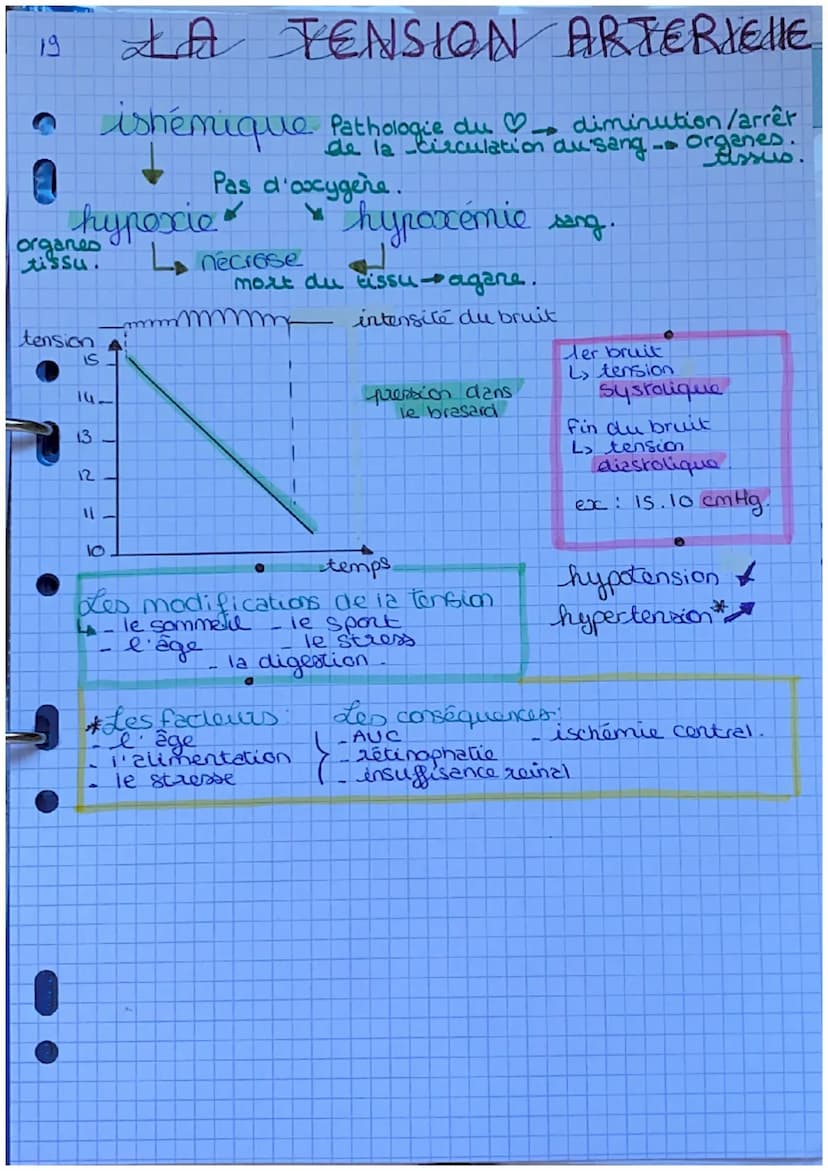 19
LA TENSION ARTERIELLE
ishémique Pathologie du ♡ → diminution/arrêt
de la circulation du sang → organes.
tissus.
Pas d'oxygène.
hypoxie hypoxémie sang.
organes
tissu.
nécrose
mort du tissu → organe.
intensité du bruit
tension
15
14
13
12
11
10
temps
pression dans
le brasard
1er bruit
↳ tension
systolique
fin du bruit
↳ tension
diastolique
ex : 15.10 cmHg.
hypotension ↙
hypertension* ↗
Les modifications de la tension
↳ - le sommeil - le sport
- l'âge - le stress
- la digestion.
*Les facteurs:
- l'âge
- l'alimentation
- le stresse
Les conséquences:
- AUC - ischémie central.
- rétinophatie
- insuffisance reinal